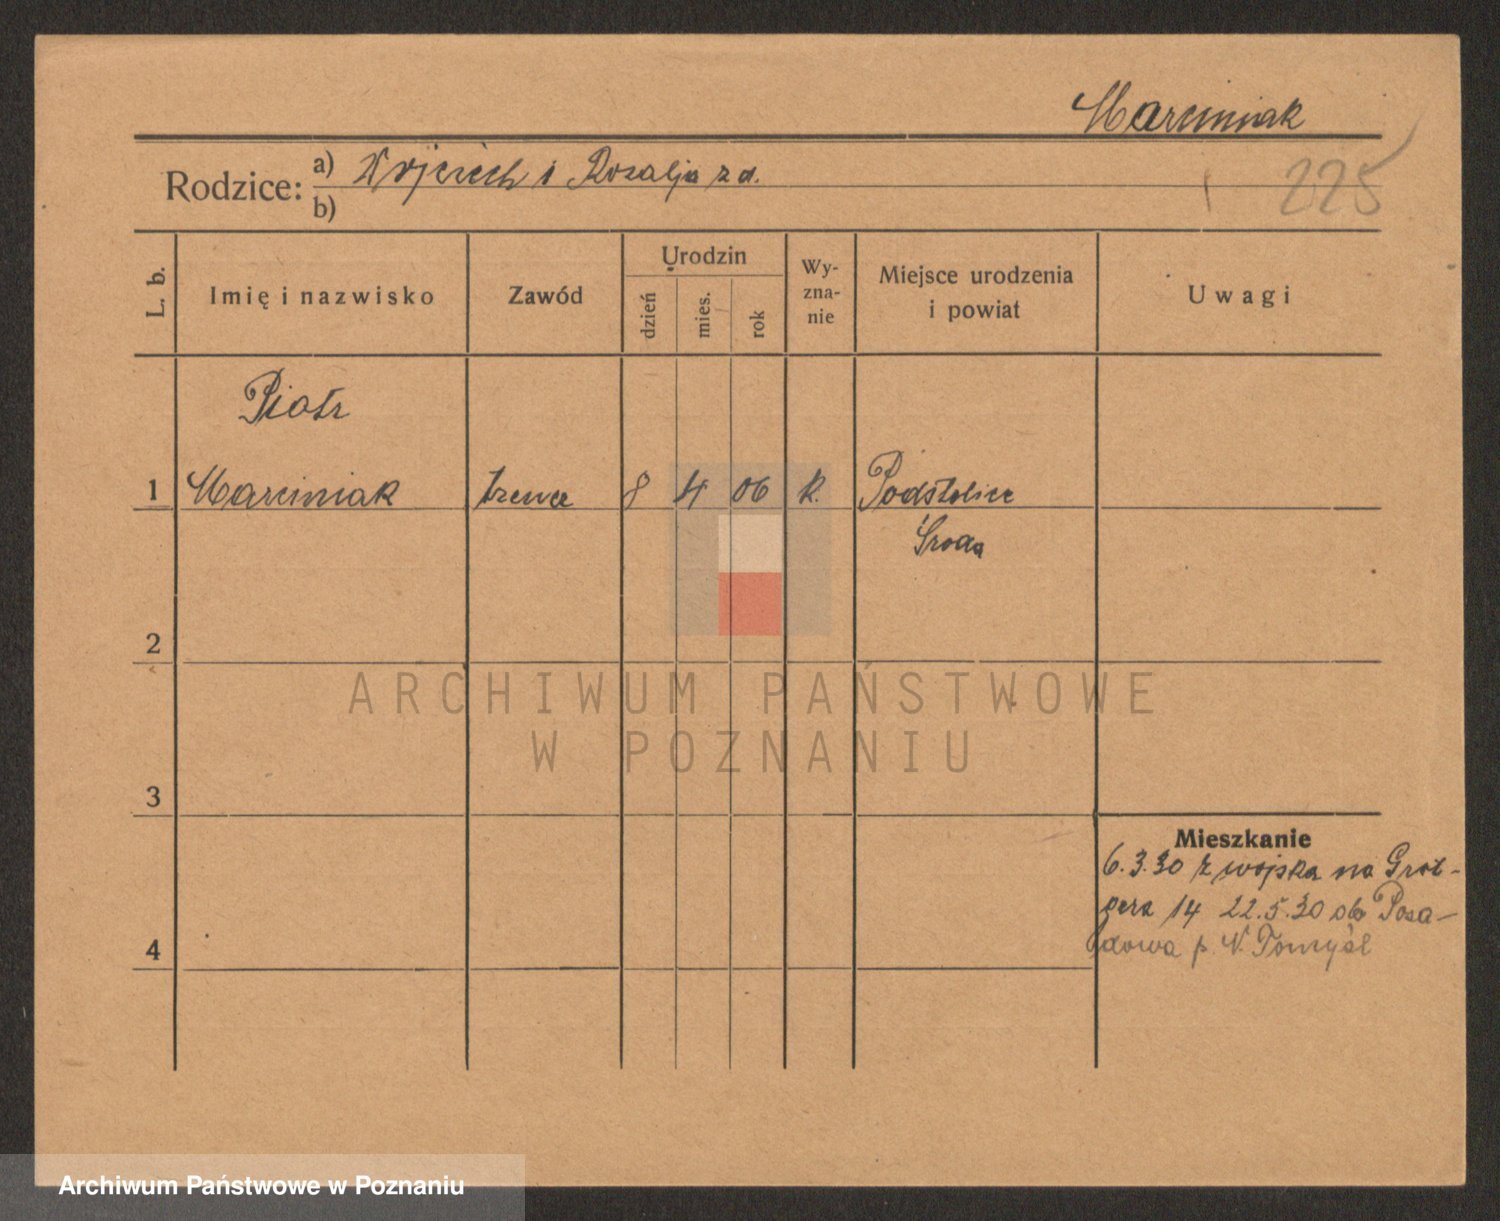 Marciniak
Rodzice: a) Wojciech i Rozalja z d.
b)
225
L. b.
Imię i nazwisko
Zawód
Urodzin
dzień
mies.
rok
Wy-
zna-
nie
Miejsce urodzenia
i powiat
Uwagi
Piotr
1 Marciniak szewc 8 4 06 k. Podstolice
Środa
2
3
4
Mieszkanie
6.3.30 z wojska na Grot-
gera 14 22.5.30 do Posa-
dowa p. N. Tomyśl
ARCHIWUM PAŃSTWOWE
W POZNANIU
Archiwum Państwowe w Poznaniu